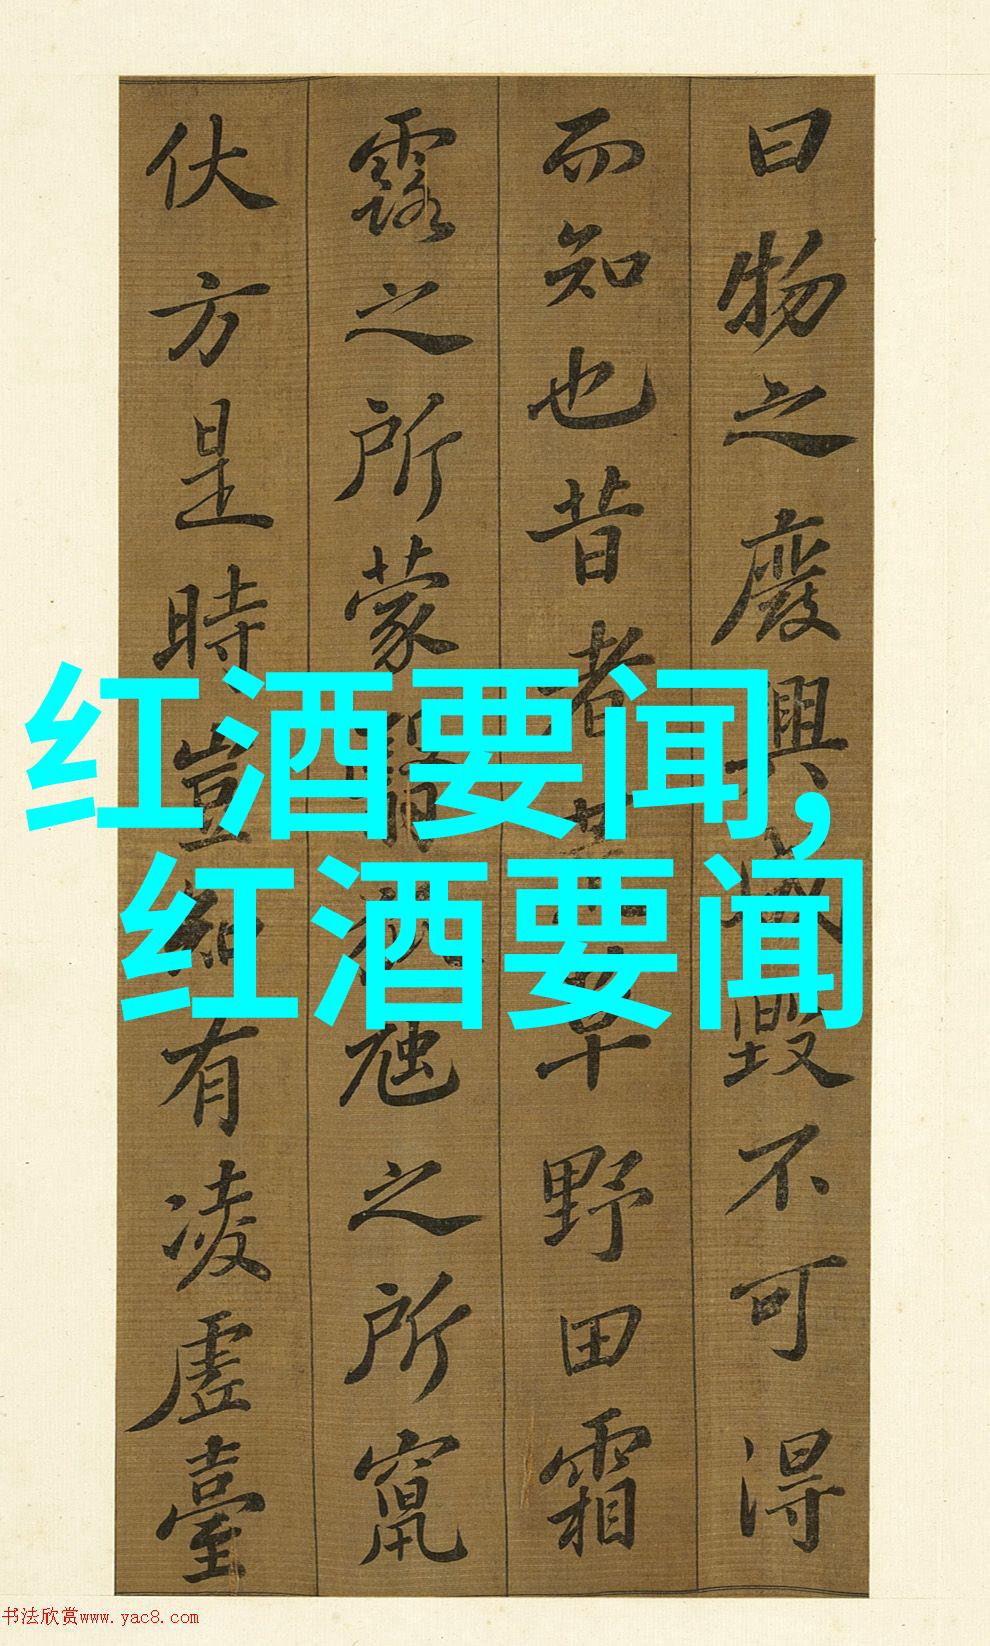 曰物之廢興成毀不可得
而知也昔者荒草野田霜
露之所蒙翳狐虺之所竄
伏方是時豈知有凌虛臺
红酒要闻,
红酒要闻
书法欣赏www.yac8.com